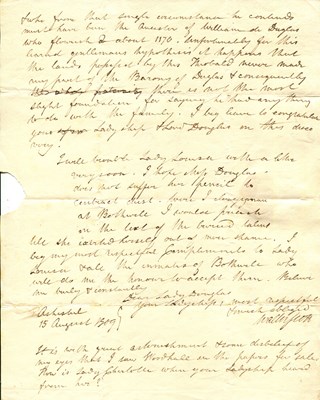 & who from that single circumstance he contends
must have been the Ancestor of William de Duglas
who flourished about 1170. Unfortunately for this
learned gentlemans hypothesis it happens that
the lands possessed by this Theobald never made
any part of the Barony of Duglas & consequently
there is not the most
slight foundation for saying he had any thing
to do with the family. I beg leave to congratulate
your Ladyship & Lord Douglas on this disco
very.
I will trouble Lady Louisa with a letter
very soon. I hope Miss Douglas
does not suffer her pencil to
contract rust. were I Clergyman
at Bothwell I would preach
on the text of the buried talent
till she carried herself out of mere shame. I
beg my most respectful Compliments to Lady
Louisa & all the inmates of Bothwell who
will do me the honour to accept them. Believe
me truly & constantly
Dear Lady Douglas
Your Ladyships most respectful
& much obliged
Walter Scott
Ashestiel
15 August 1809
It is with great astonishment & some disbelief of
my eyes that I saw Woodhall in the papers for sale
How is Lady Charlotte when your Ladyship heard
from her?